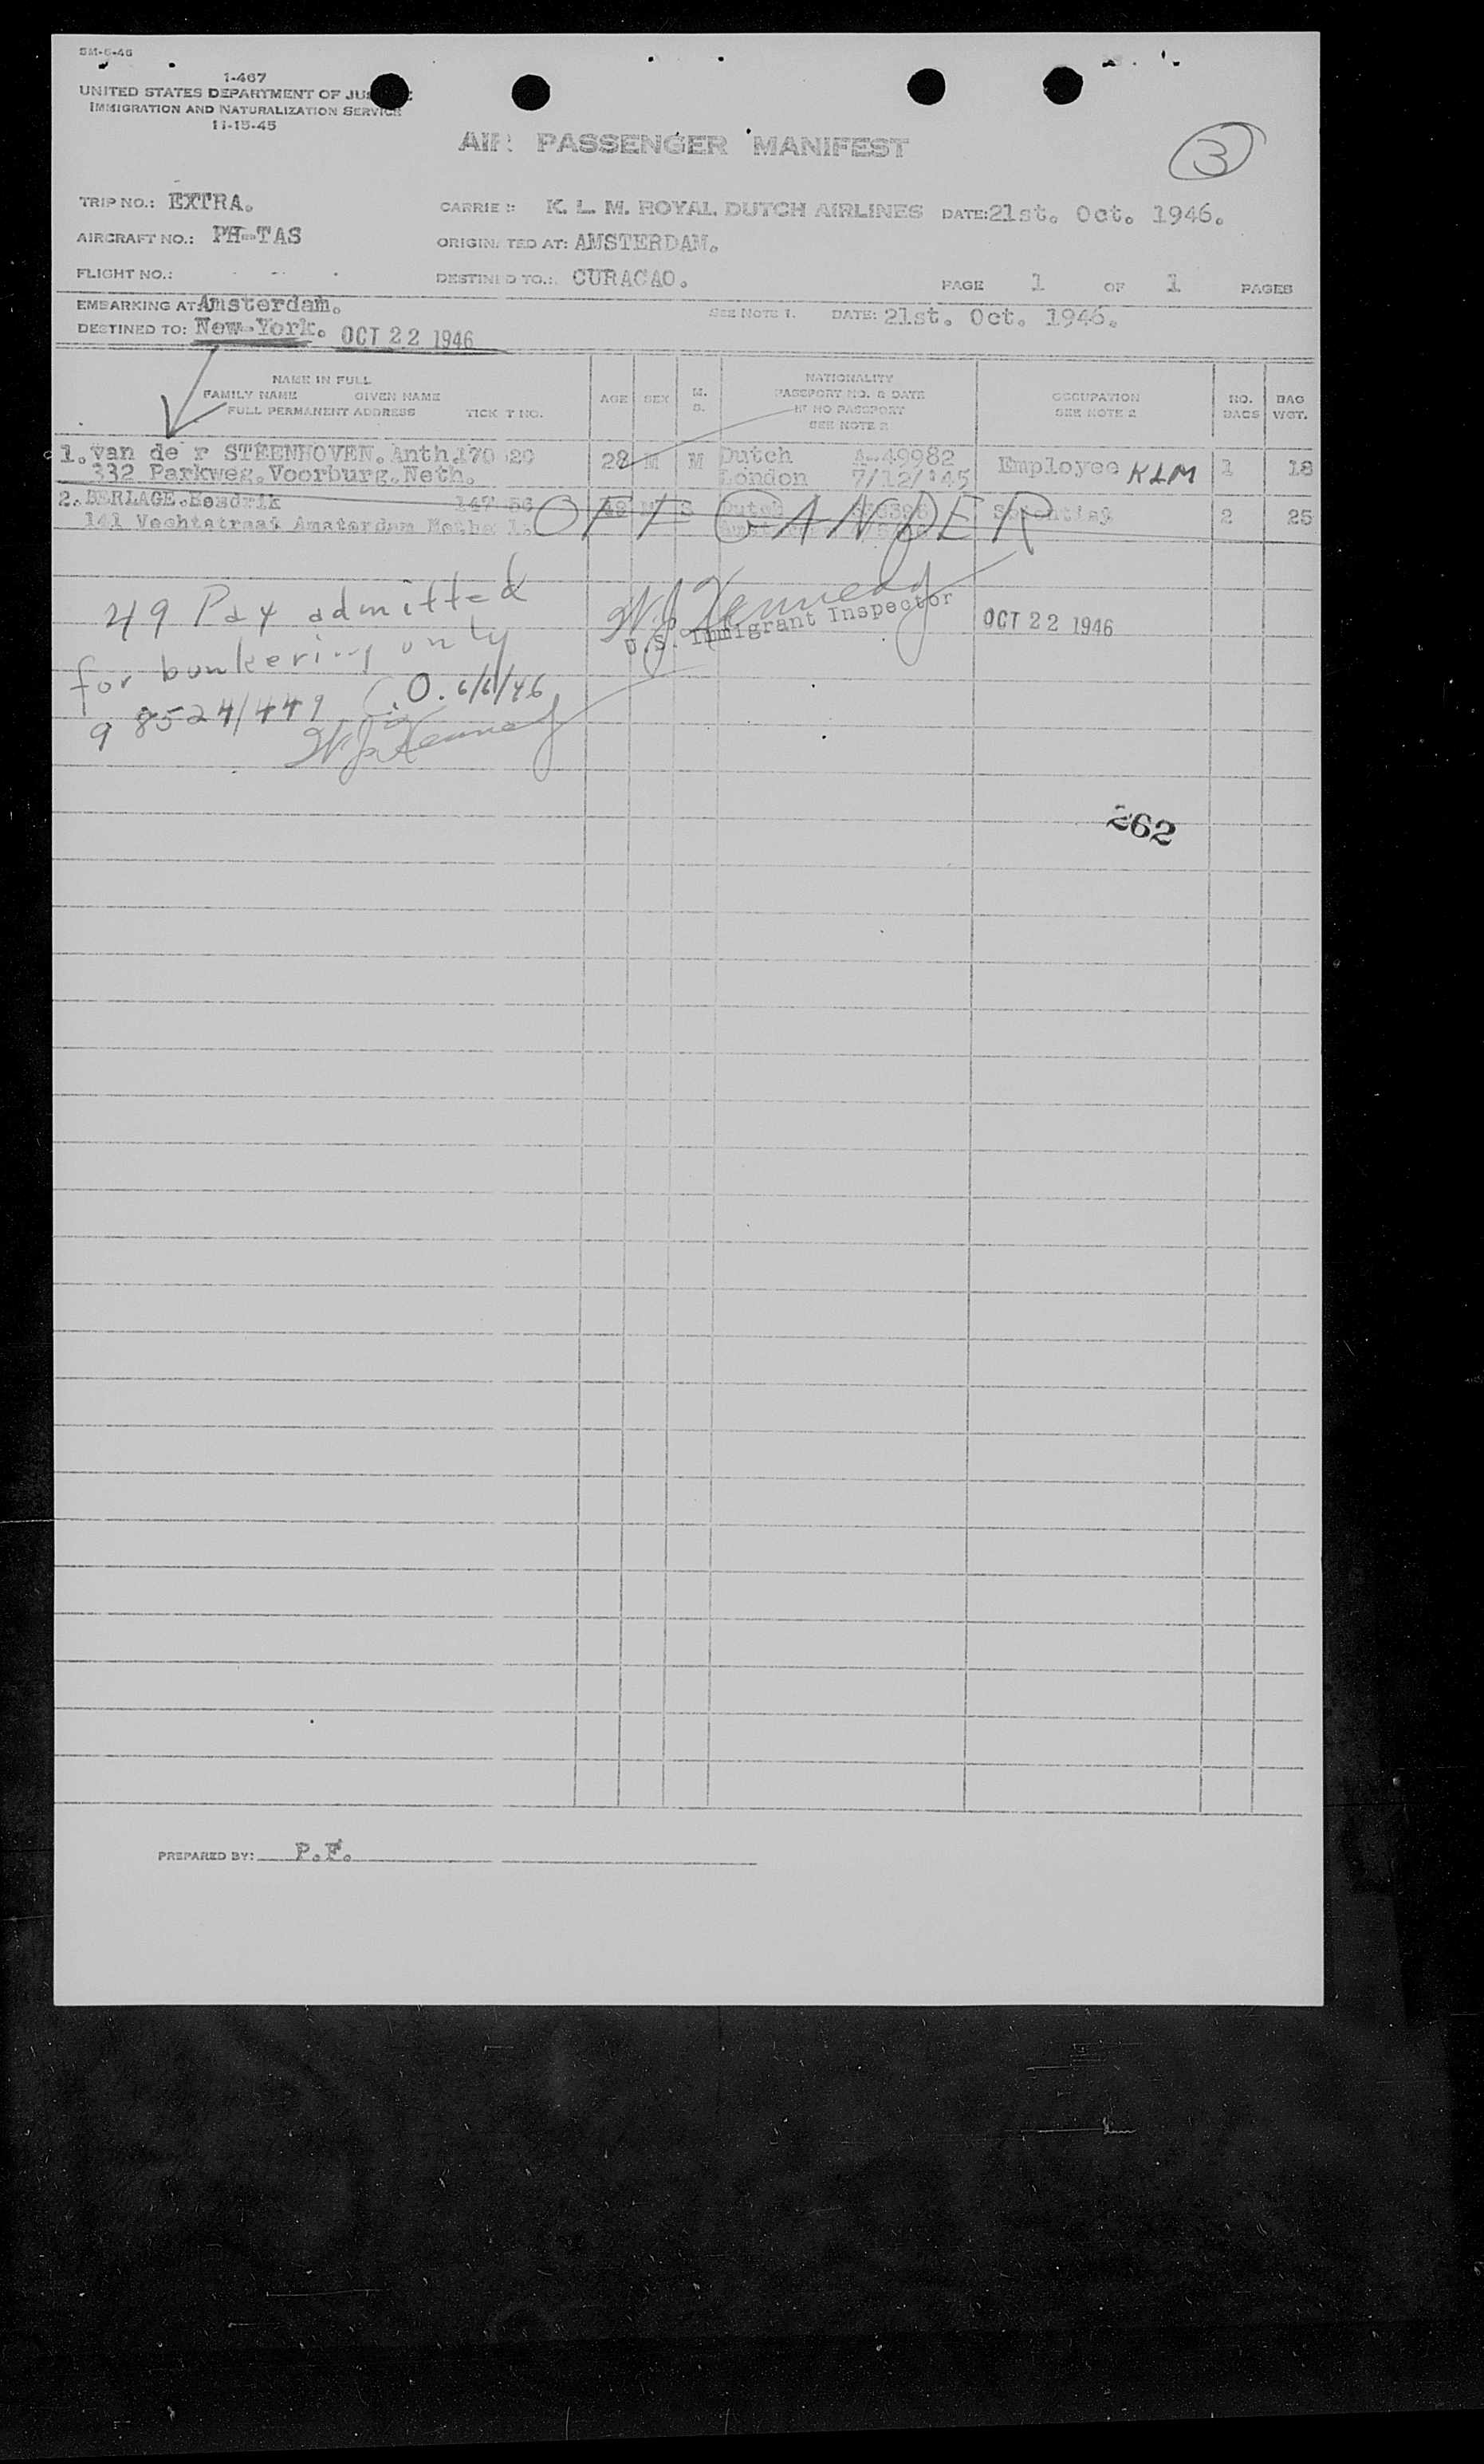 5M-6-46
1-467
UNITED STATES DEPARTMENT OF
IMMIGRATION AND NATURALIZATION SERVICE
11-15-45
AIR PASSENGER MANIFEST
3
TRIP NO.: EXTRA. CARRIER: K. L. M. ROYAL DUTCH AIRLINES DATE: 21st. Oct. 1946.
AIRCRAFT NO.: PH-TAS ORIGINATED AT: AMSTERDAM.
FLIGHT NO.: DESTINED TO.: CURACAO. PAGE 1 OF 1 PAGES
EMBARKING AT: Amsterdam. SEE NOTE 1. DATE: 21st. Oct. 1946.
DESTINED TO: New-York. OCT 22 1946
NAME IN FULL AGE SEX M. S. NATIONALITY OCCUPATION NO. BAGS BAG WGT.
FAMILY NAME GIVEN NAME PASSPORT NO. & DATE SEE NOTE 2
FULL PERMANENT ADDRESS TICKET NO. IF NO PASSPORT
SEE NOTE 2
1. van de r STEENHOVEN. Anth. 170 20 28 M M Dutch A-49982 Employee KLM 1 18
332 Parkweg. Voorburg. Neth. London 7/12/'45
2. BERLAGE. Hendrik 147 56 49 M S Dutch 2 25
141 Vechtstraat Amsterdam OFF GANDER
49 Pax admitted W.J. Kennedy
for bunkering only U.S. Immigrant Inspector OCT 22 1946
98524/449 C.O. 6/6/46
W.J. Kennedy
262
PREPARED BY: P.F.